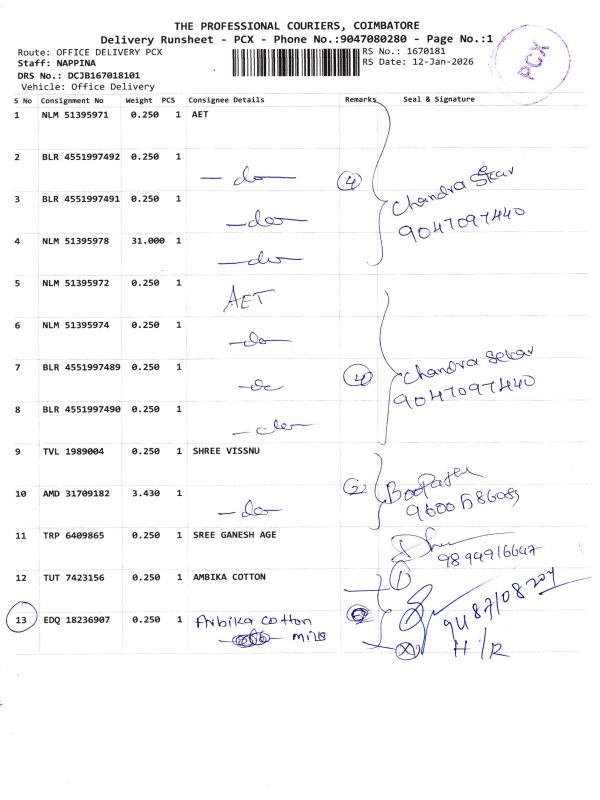 THE PROFESSIONAL COURIERS, COIMBATORE
Delivery Runsheet - PCX - Phone No.:9047080280 - Page No.:1
Route: OFFICE DELIVERY PCX
RS No.: 1670181
Staff: NAPPINA
RS Date: 12-Jan-2026
DRS No.: DCJB167018101
Vehicle: Office Delivery
PCX
S No Consignment No Weight PCS Consignee Details Remarks Seal & Signature
1 NLM 51395971 0.250 1 AET
2 BLR 4551997492 0.250 1 -do-
4 Chandra Sekar
3 BLR 4551997491 0.250 1 -do-
9047097440
4 NLM 51395978 31.000 1 -do-
5 NLM 51395972 0.250 1 AET
6 NLM 51395974 0.250 1 -do-
7 BLR 4551997489 0.250 1 -do
4 Chandra Sekar
9047097440
8 BLR 4551997490 0.250 1 -do-
9 TVL 1989004 0.250 1 SHREE VISSNU
10 AMD 31709182 3.430 1 -do-
11 TRP 6409865 0.250 1 SREE GANESH AGE
9894916647
12 TUT 7423156 0.250 1 AMBIKA COTTON
1
13 EDQ 18236907 0.250 1 Ambika cotton
mills
9487108204
H/R